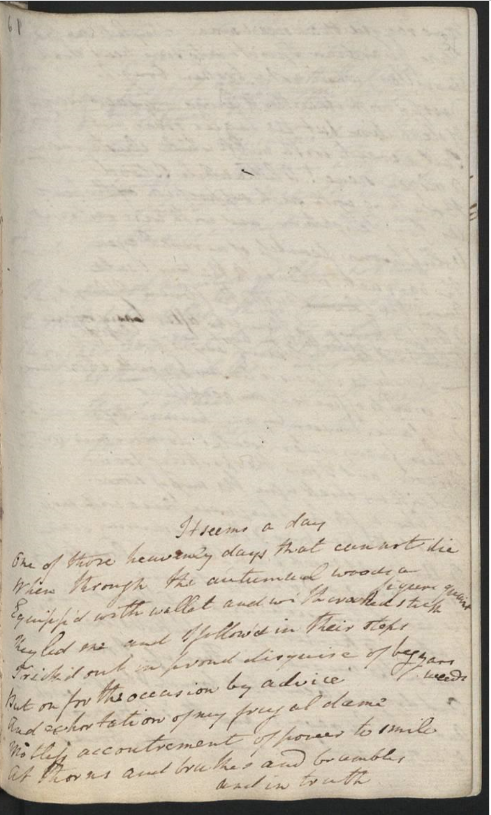 61
It seems a day
One of those heavenly days that cannot die
When through the autumnal woods a figure quaint
Equipp'd with wallet and with crooked stick
They led me and I followed in their steps
Trick'd out in proud disguise of beggars weeds
Put on for the occasion by advice
And exhortation of my frugal dame
Motley accoutrement of power to smile
At thorns and brakes and brambles
and in truth